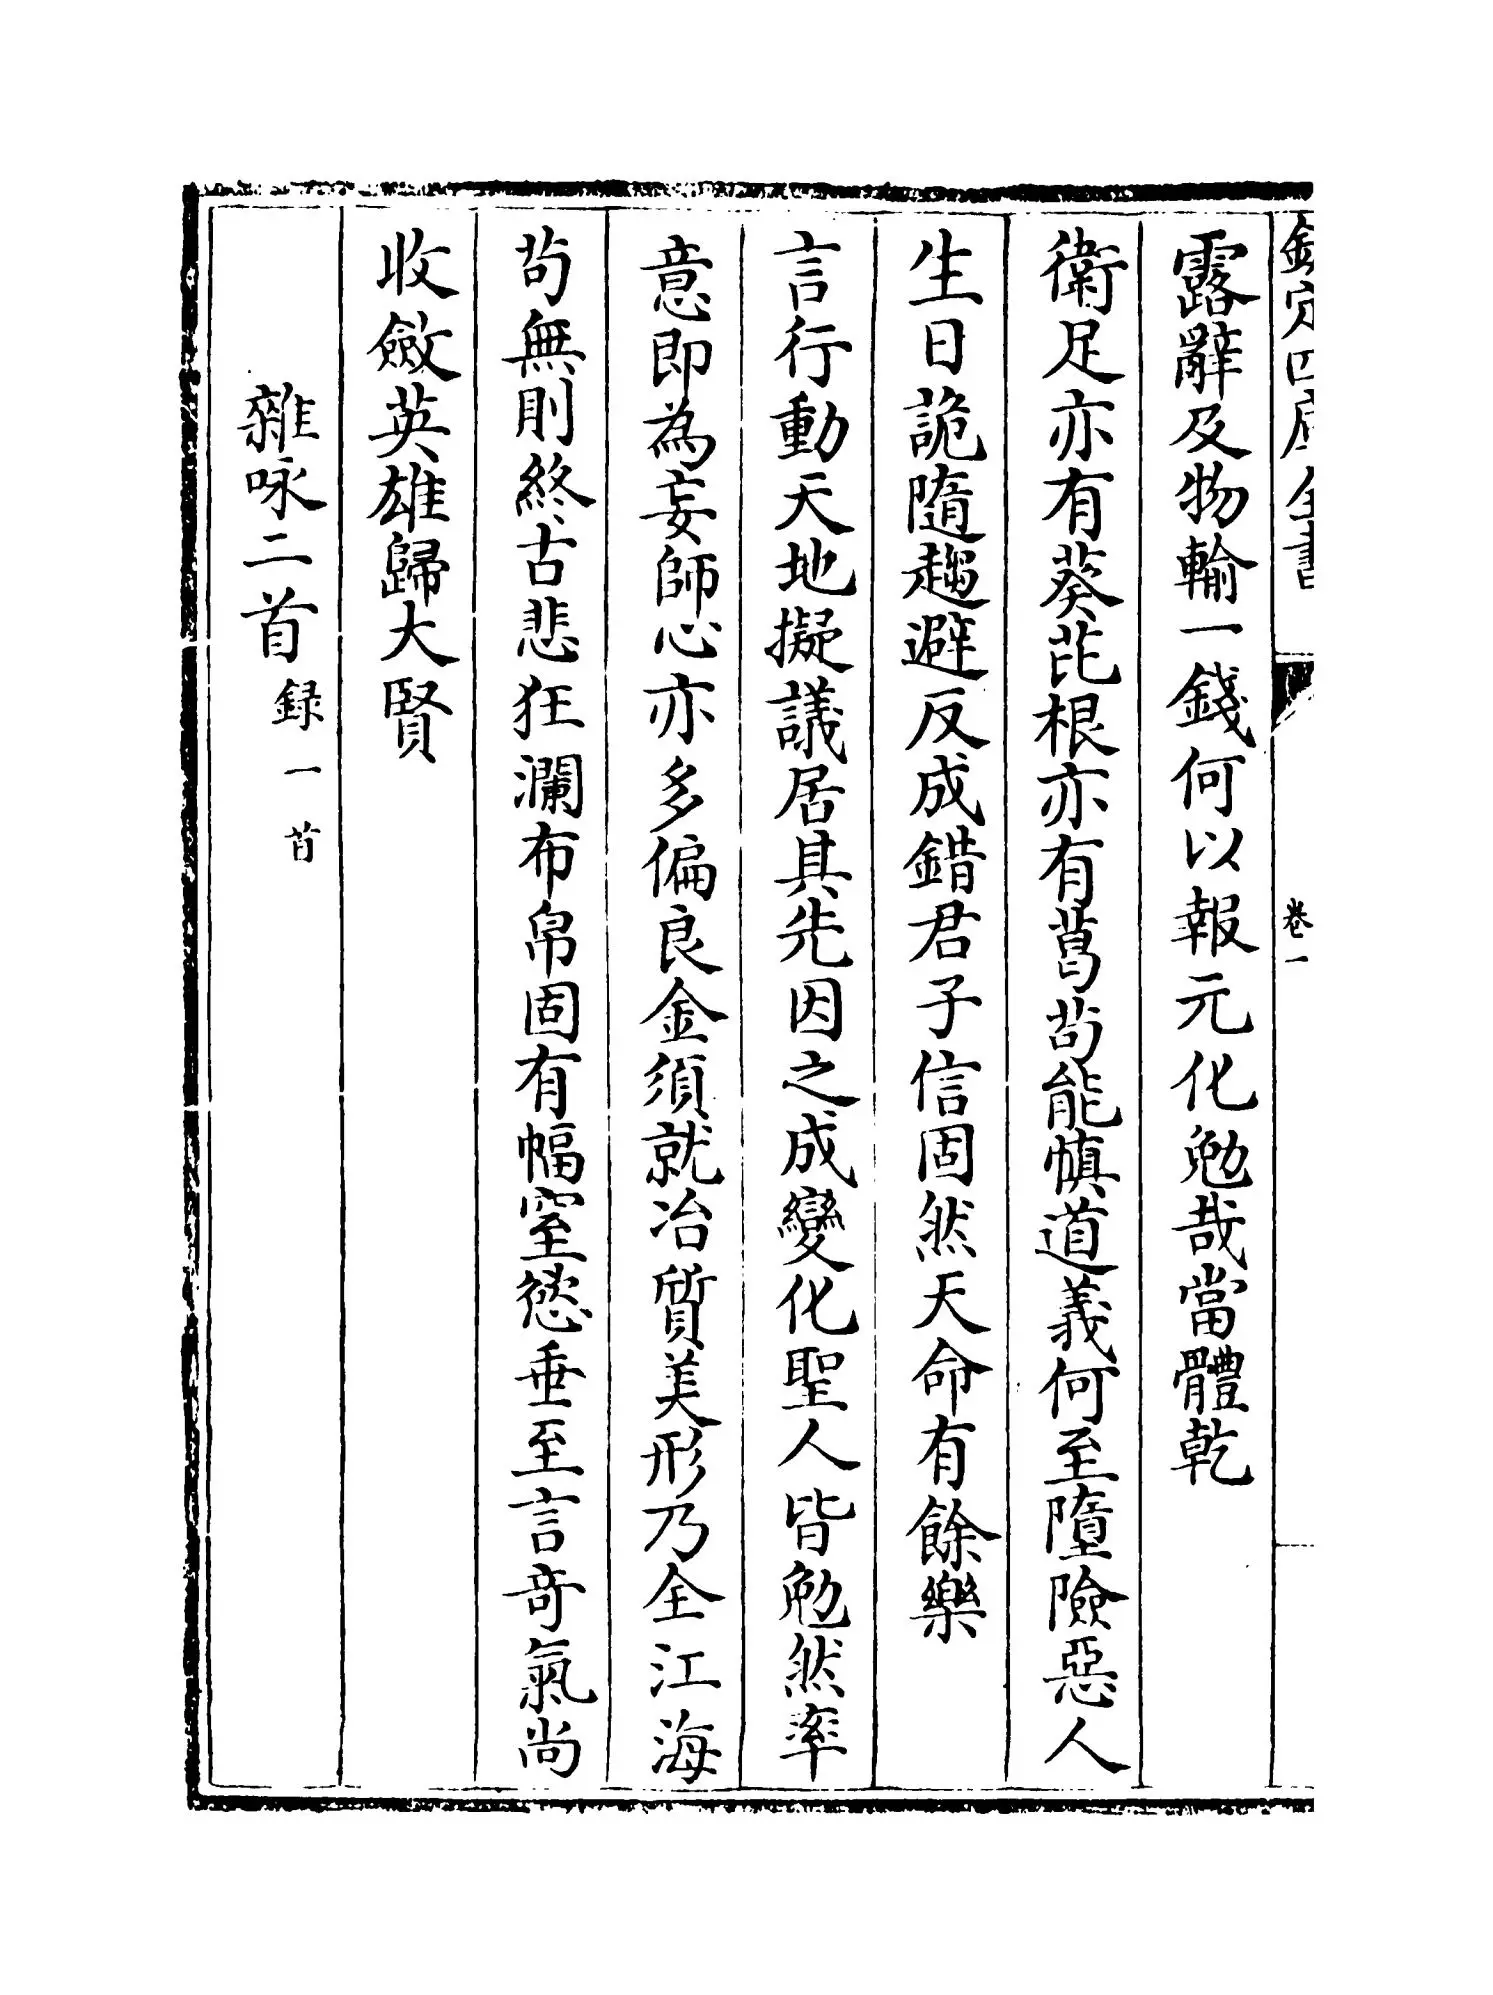 欽定四庫全書
卷一
露辭及物輸一錢何以報元化勉哉當體乾
衛足亦有葵芘根亦有葛苟能慎道義何至墮險惡人
生日詭隨趨避反成錯君子信固然天命有餘樂
言行動天地擬議居其先因之成變化聖人皆勉然率
意即為妄師心亦多偏良金須就冶質美形乃全江海
苟無則終古悲狂瀾布帛固有幅窒慾垂至言奇氣尚
收斂英雄歸大賢
雜咏二首録一首